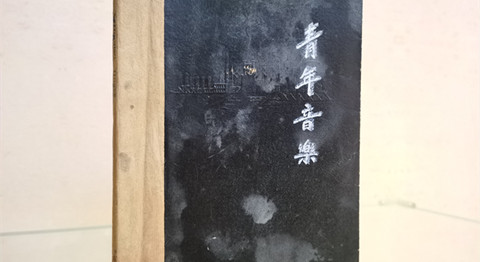 青年音樂